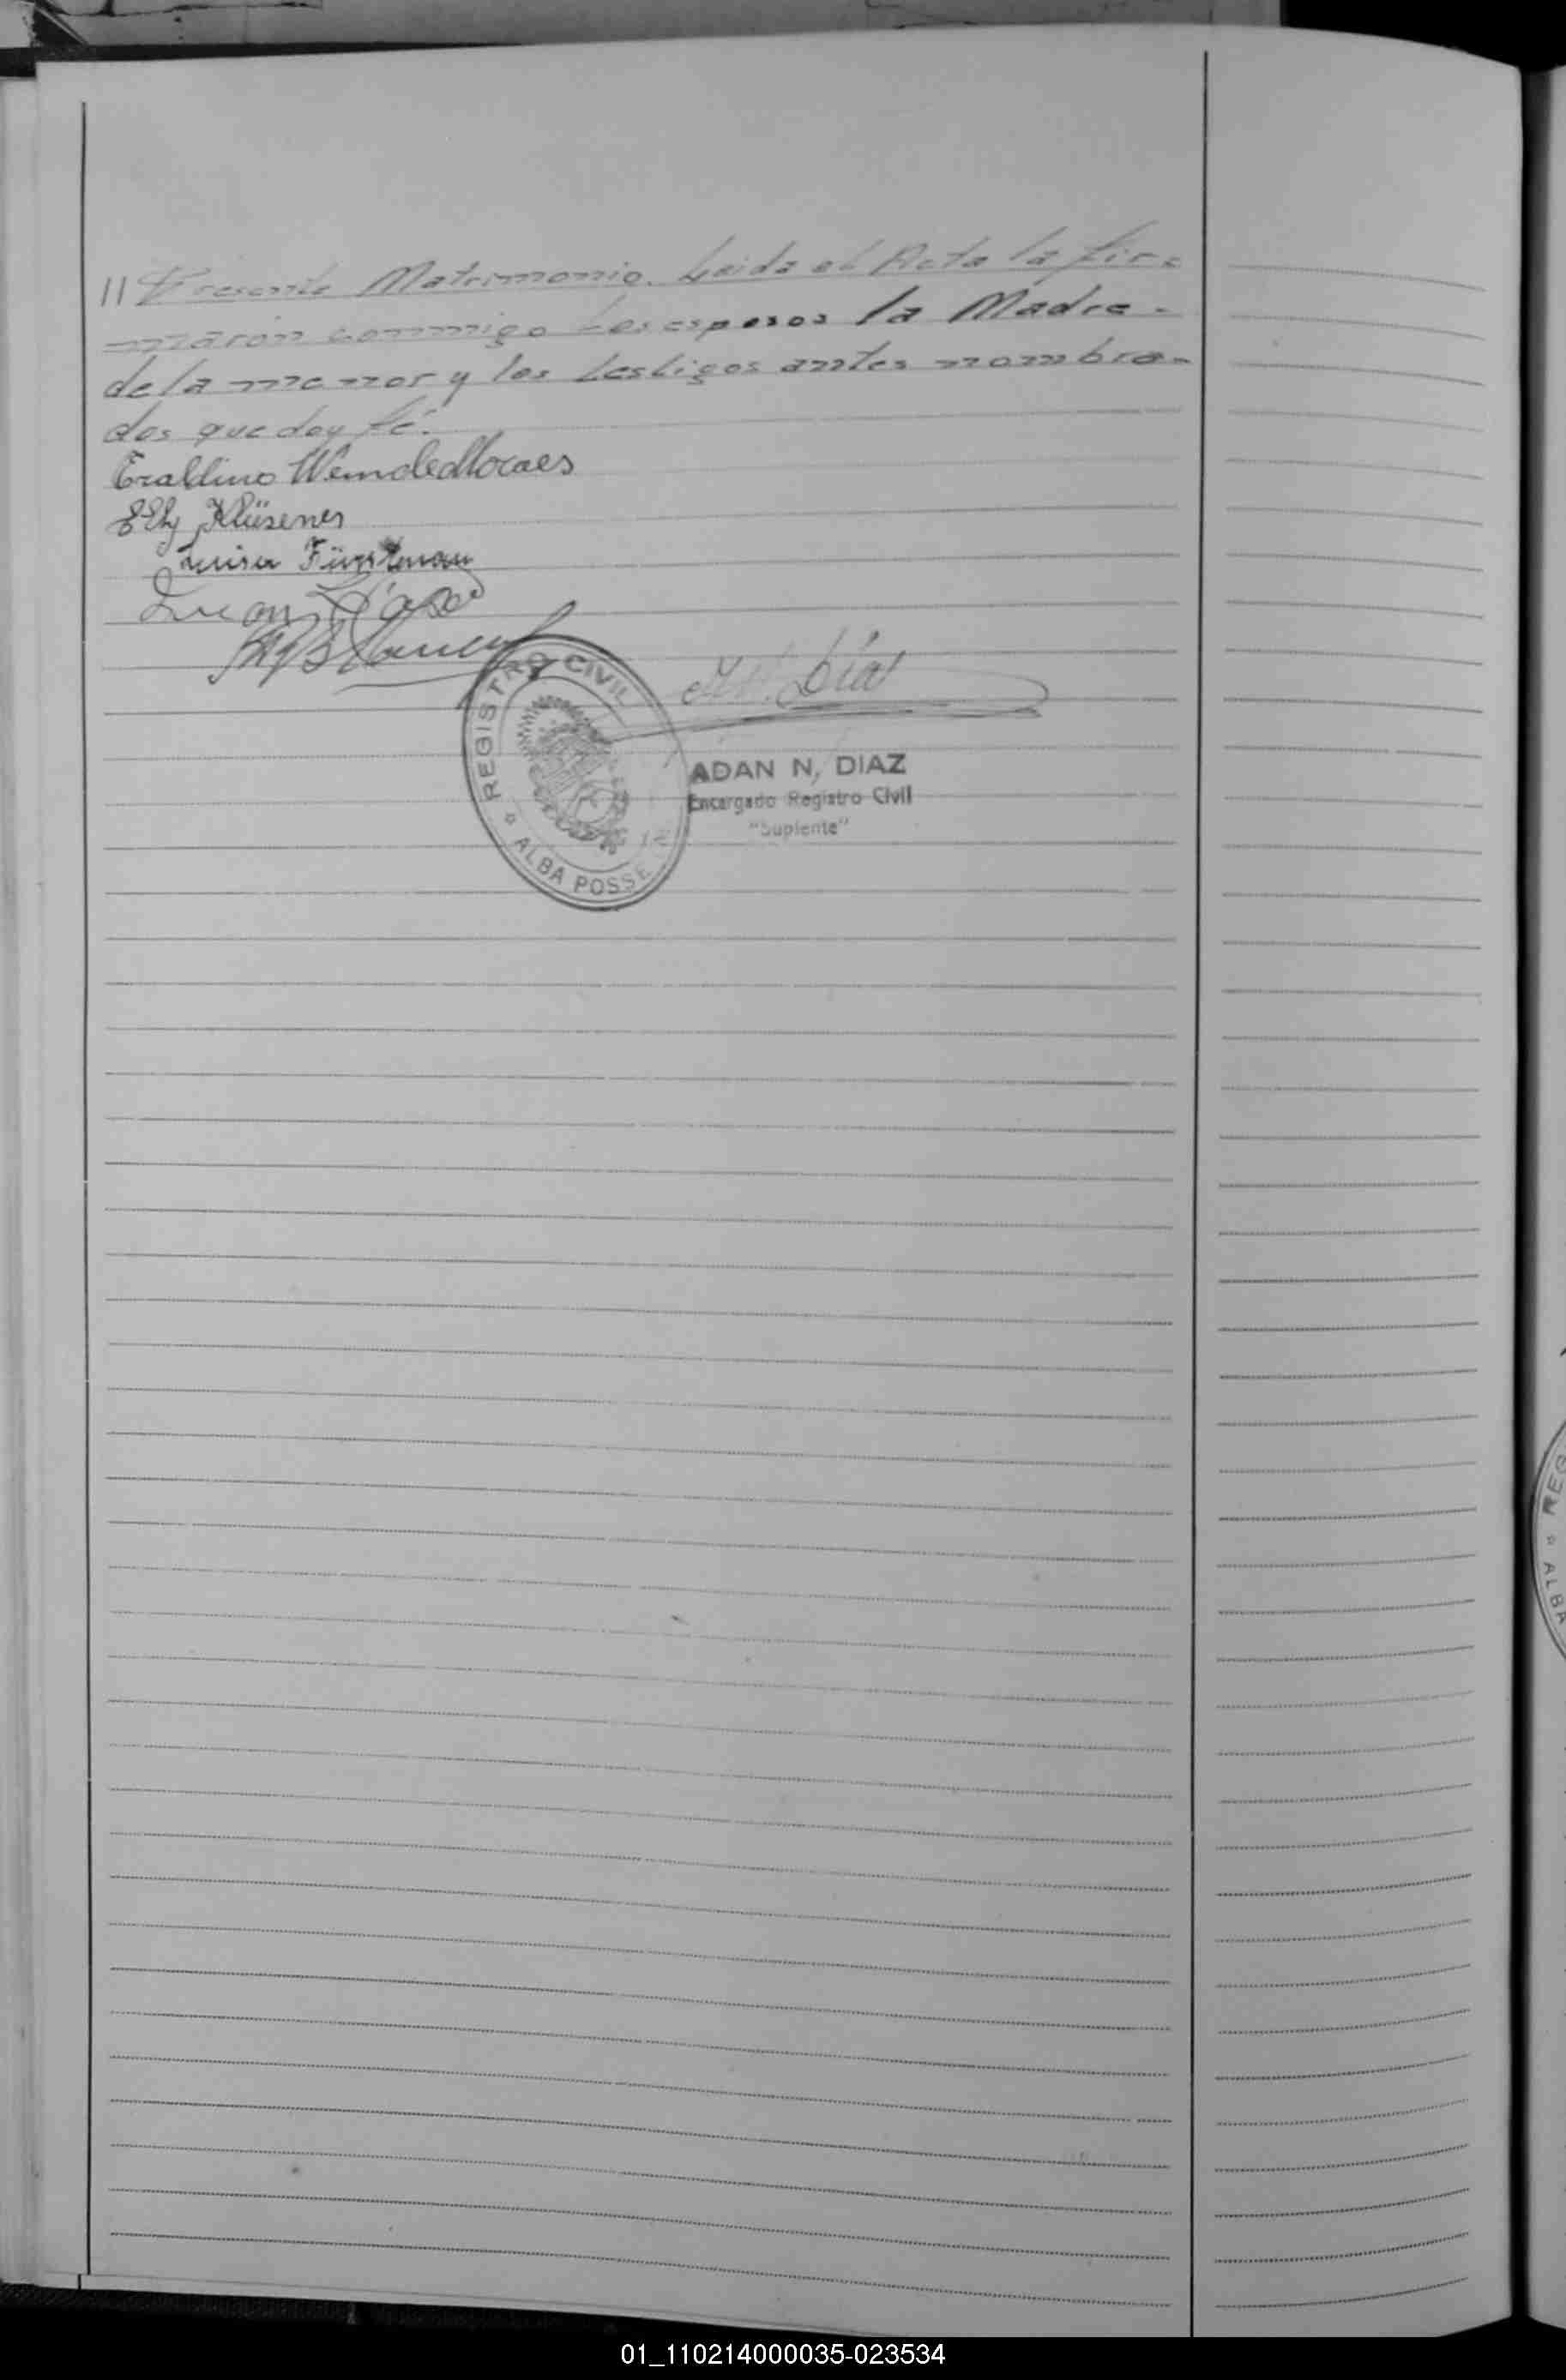 // Presente Matrimonio. Leida el Acta la fir-
maron conmigo los esposos la Madre-
de la menor y los testigos antes nombra-
dos que doy fé.
Eraldino Wende Moraes
Elly Klüsener
Luisa Fürstenau
Lucas
REGISTRO CIVIL
Díaz
ADAN N, DIAZ
Encargado Registro Civil
"Suplente"
☆ ALBA POSSE
REG
☆ ALBA
01_110214000035-023534